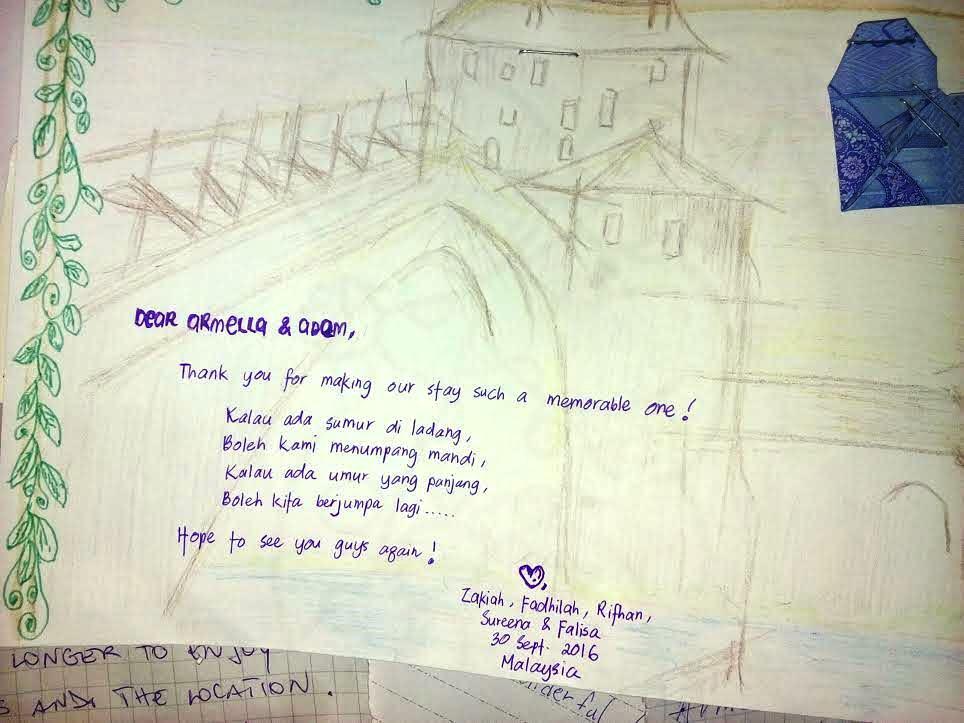 DEAR ARMELLA & ADAM,
Thank you for making our stay such a memorable one!
Kalau ada sumur di ladang,
Boleh kami menumpang mandi,
Kalau ada umur yang panjang,
Boleh kita berjumpa lagi.....
Hope to see you guys again!
Zakiah, Fadhilah, Rifhan,
Sureena & Falisa
30 Sept. 2016
Malaysia
LONGER TO ENJOY
AND THE LOCATION.